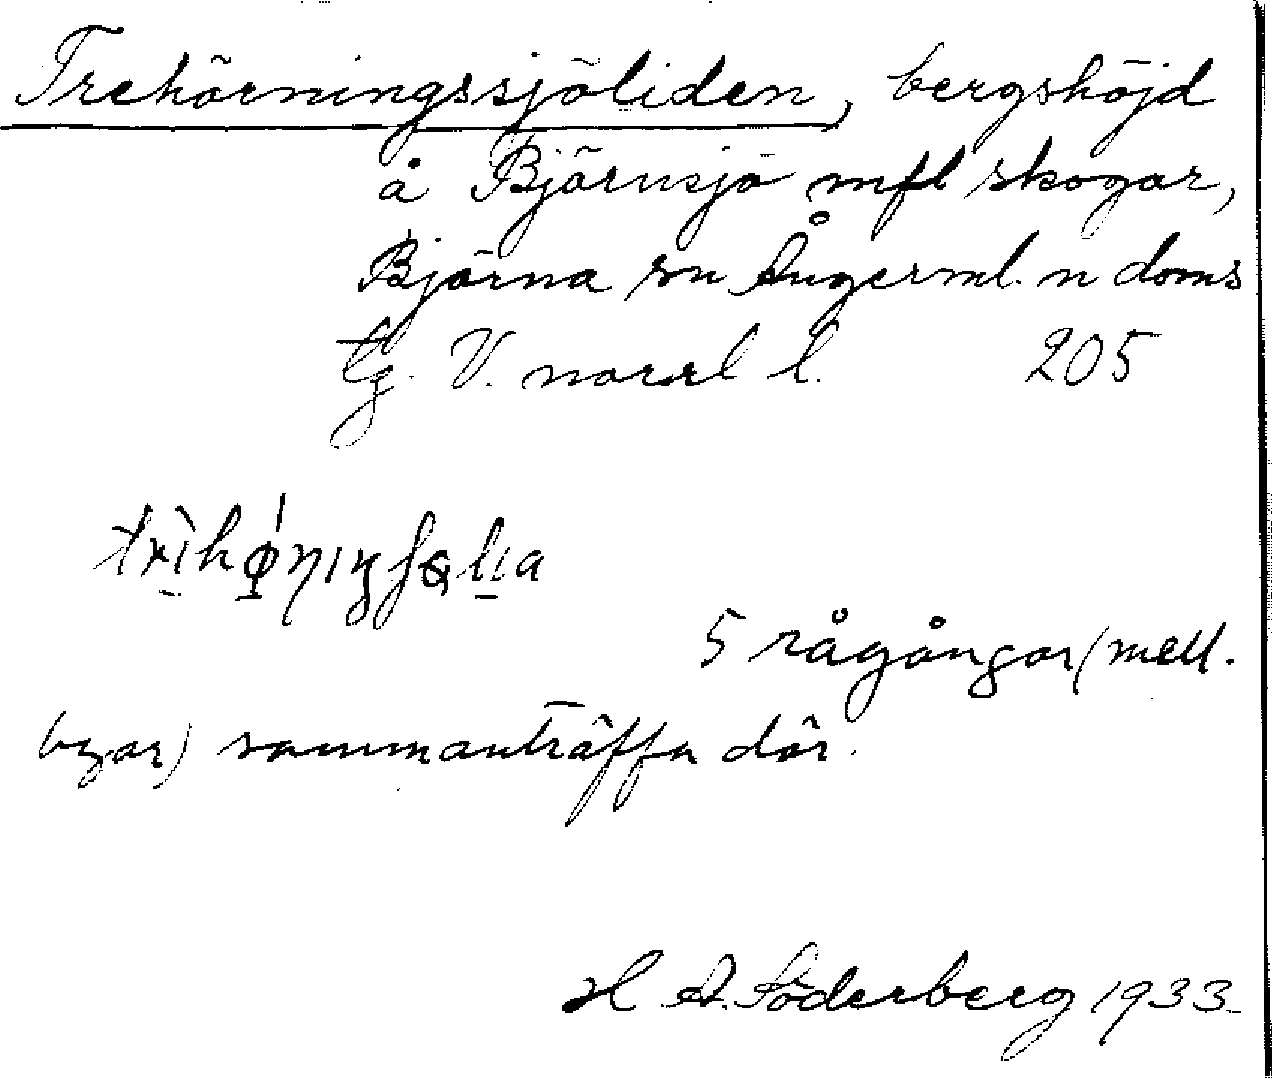 Trehörningssjöliden, bergshöjd
å Björnsjö mfl skogar,
Björna sn Ångerml. n doms
tg. V. norrl l. 205
5 rågångar (mell.
byar) sammanträffa där.
H A. Söderberg 1933